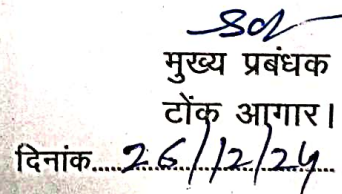 Sd/
मुख्य प्रबंधक
टोंक आगार।
दिनांक....26/12/24....